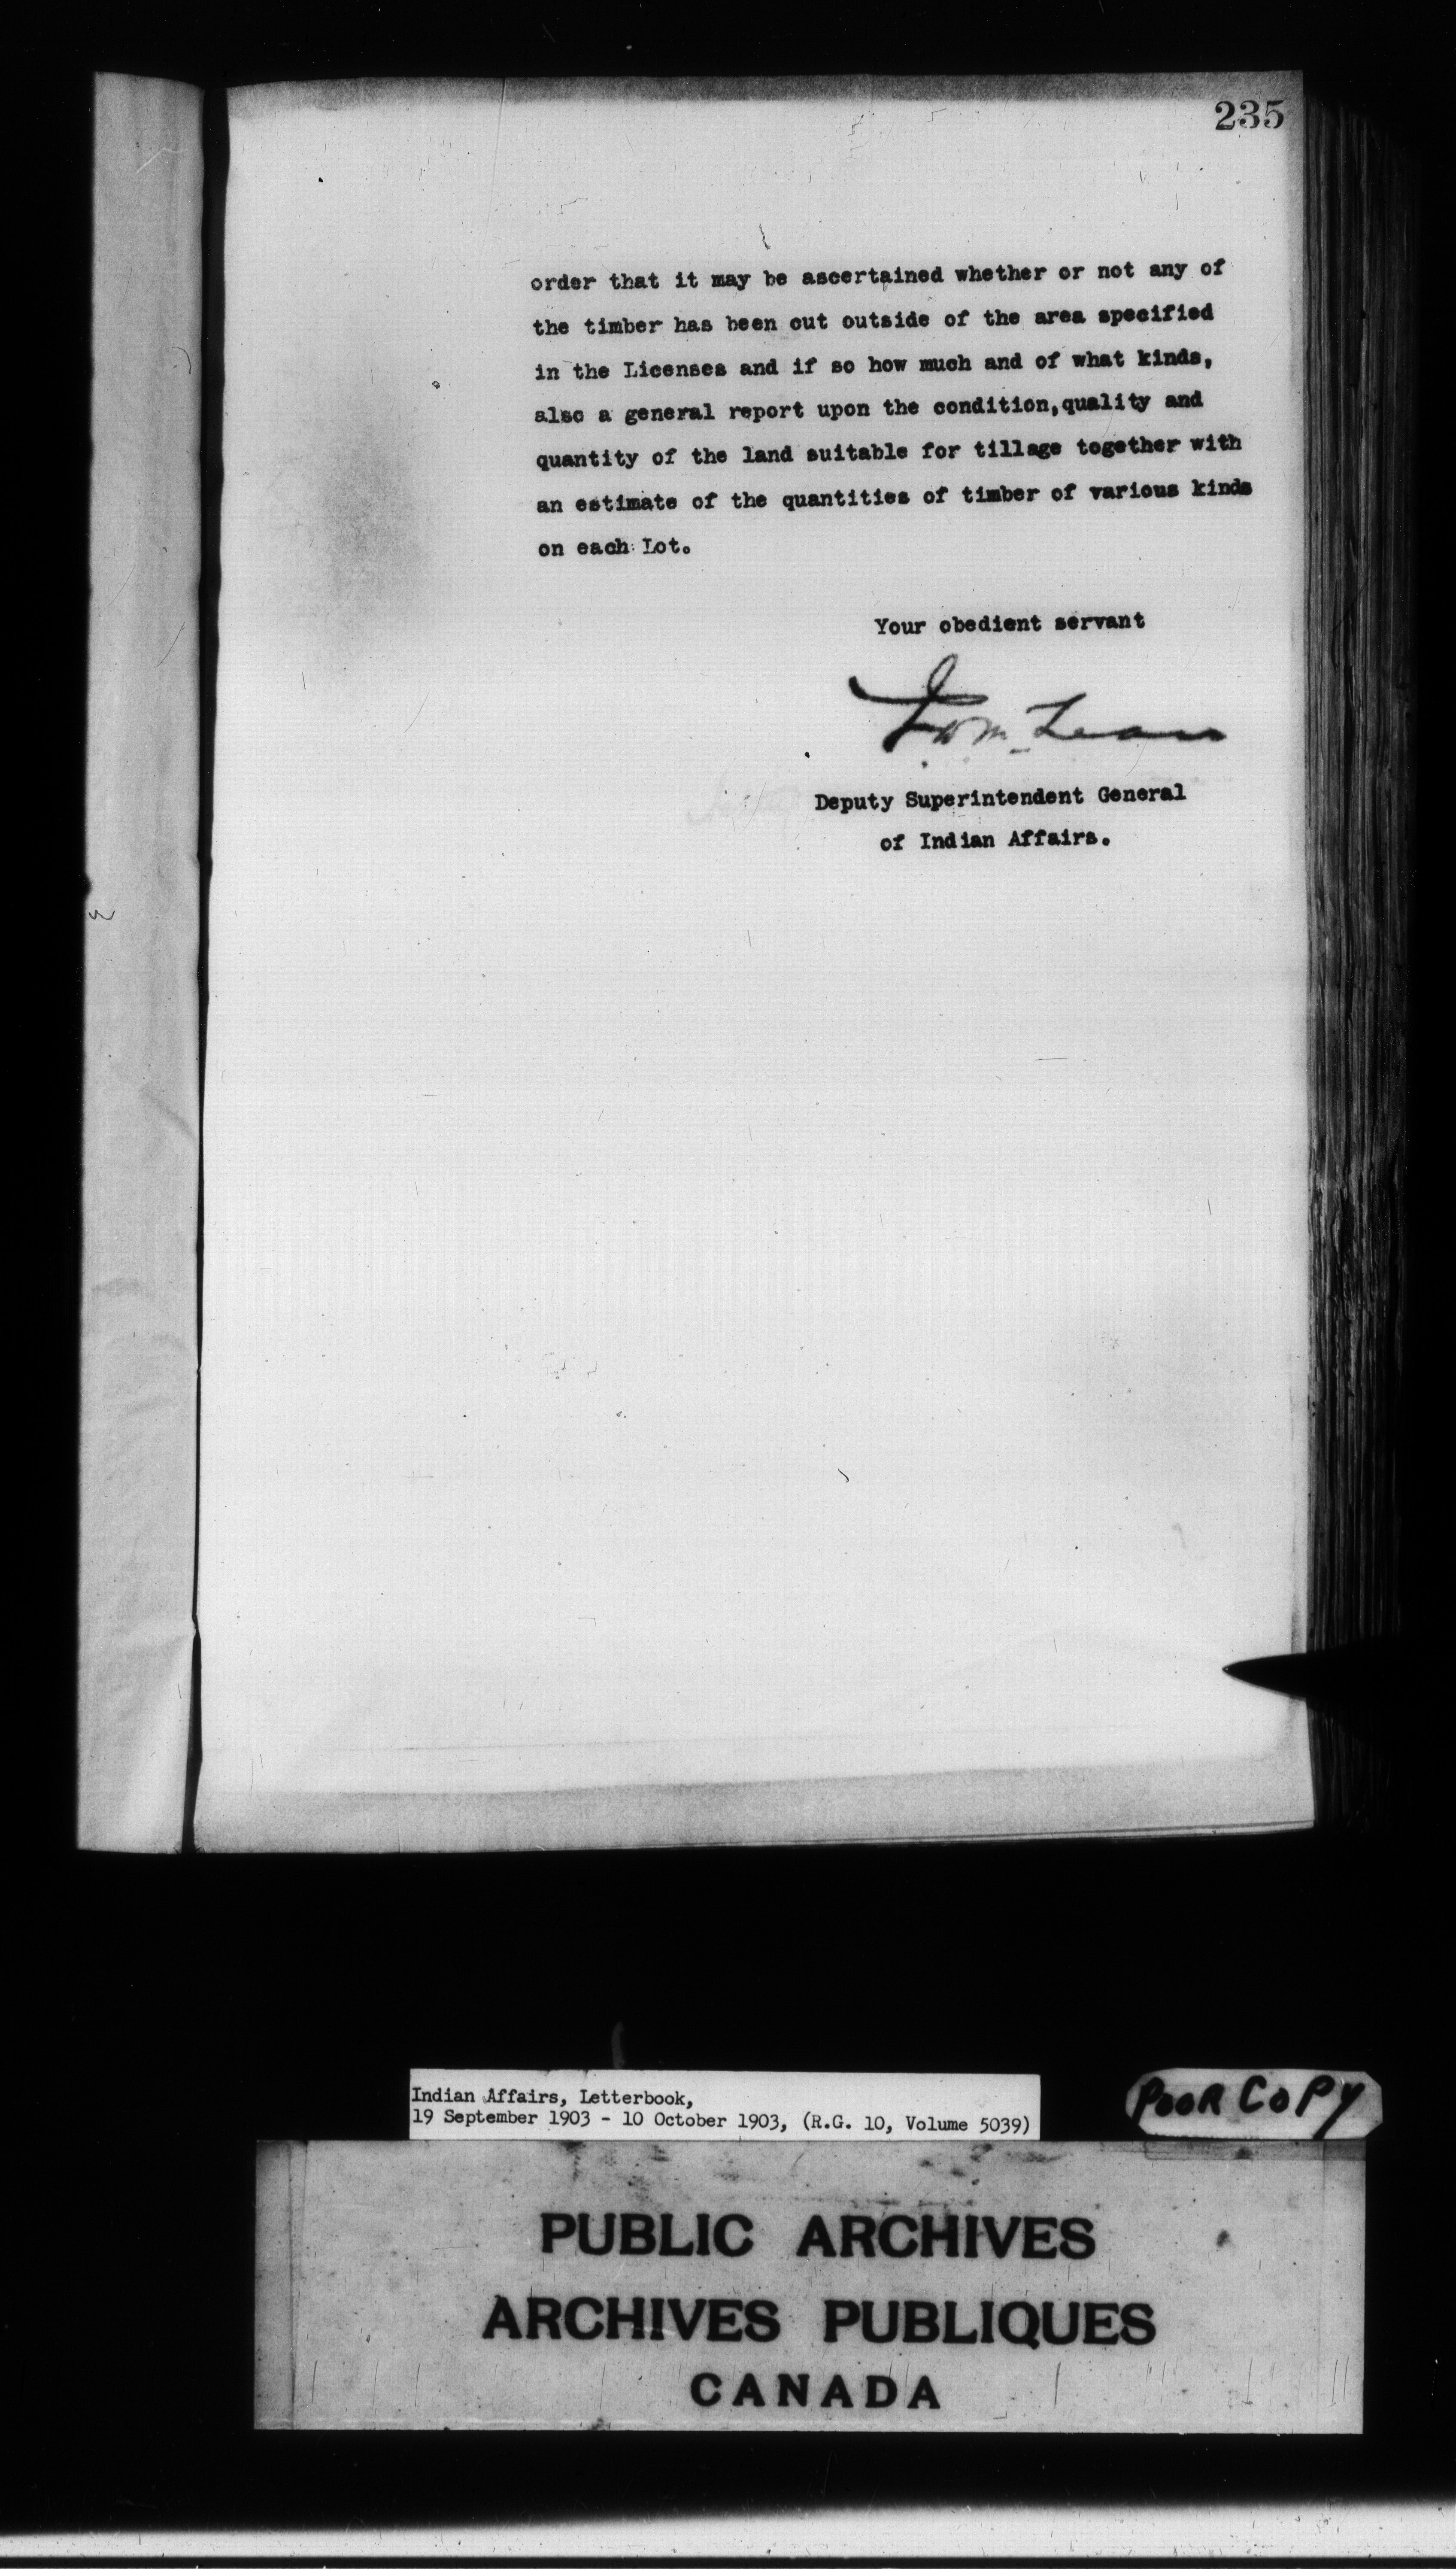 235
order that it may be ascertained whether or not any of
the timber has been cut outside of the area specified
in the Licenses and if so how much and of what kinds,
also a general report upon the condition,quality and
quantity of the land suitable for tillage together with
an estimate of the quantities of timber of various kinds
on each Lot.
Your obedient servant
Deputy Superintendent General
of Indian Affairs.
Indian Affairs, Letterbook,
19 September 1903 - 10 October 1903, (R.G. 10, Volume 5039)
POOR COPY
PUBLIC ARCHIVES
ARCHIVES PUBLIQUES
CANADA